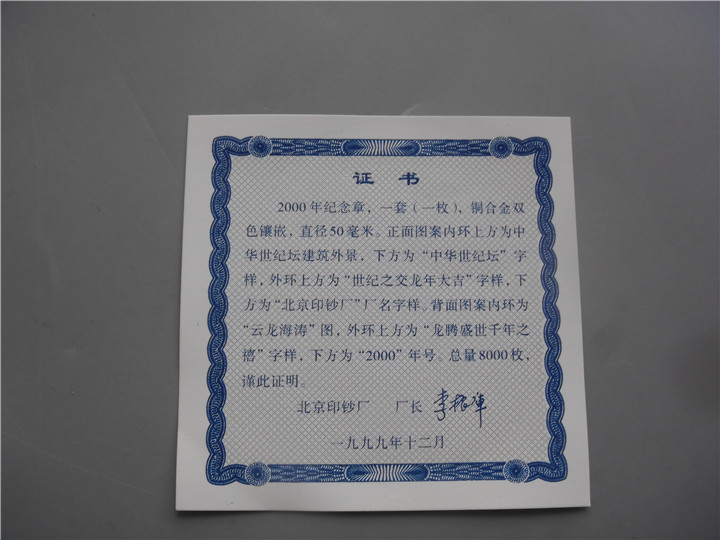 证书
2000年纪念章，一套（一枚），铜合金双
色镶嵌，直径50毫米。正面图案内环上方为中
华世纪坛建筑外景，下方为“中华世纪坛”字
样，外环上方为“世纪之交龙年大吉”字样，下
方为“北京印钞厂”厂名字样。背面图案内环为
“云龙海涛”图，外环上方为“龙腾盛世千年之
禧”字样，下方为“2000”年号。总量8000枚，
谨此证明。
北京印钞厂 厂长 李振军
一九九九年十二月